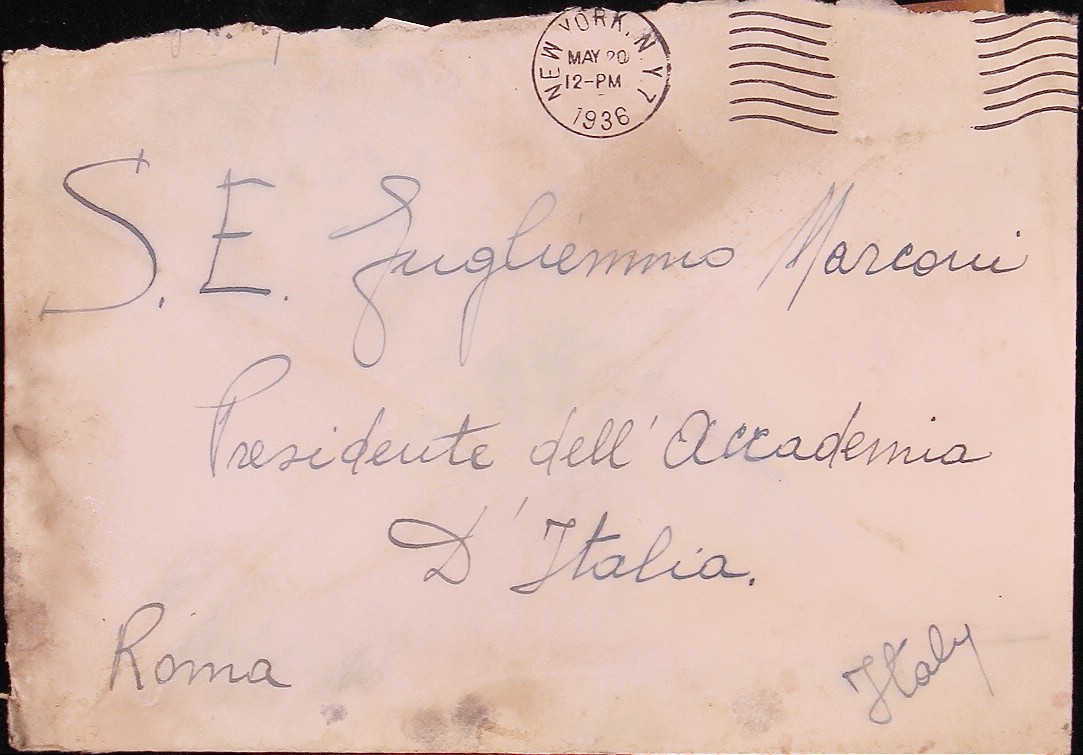 NEW YORK, N.Y. 7
MAY 20
12-PM
1936
S. E. Gugliemmo Marconi
Presidente dell' Accademia
D' Italia.
Roma
Italy